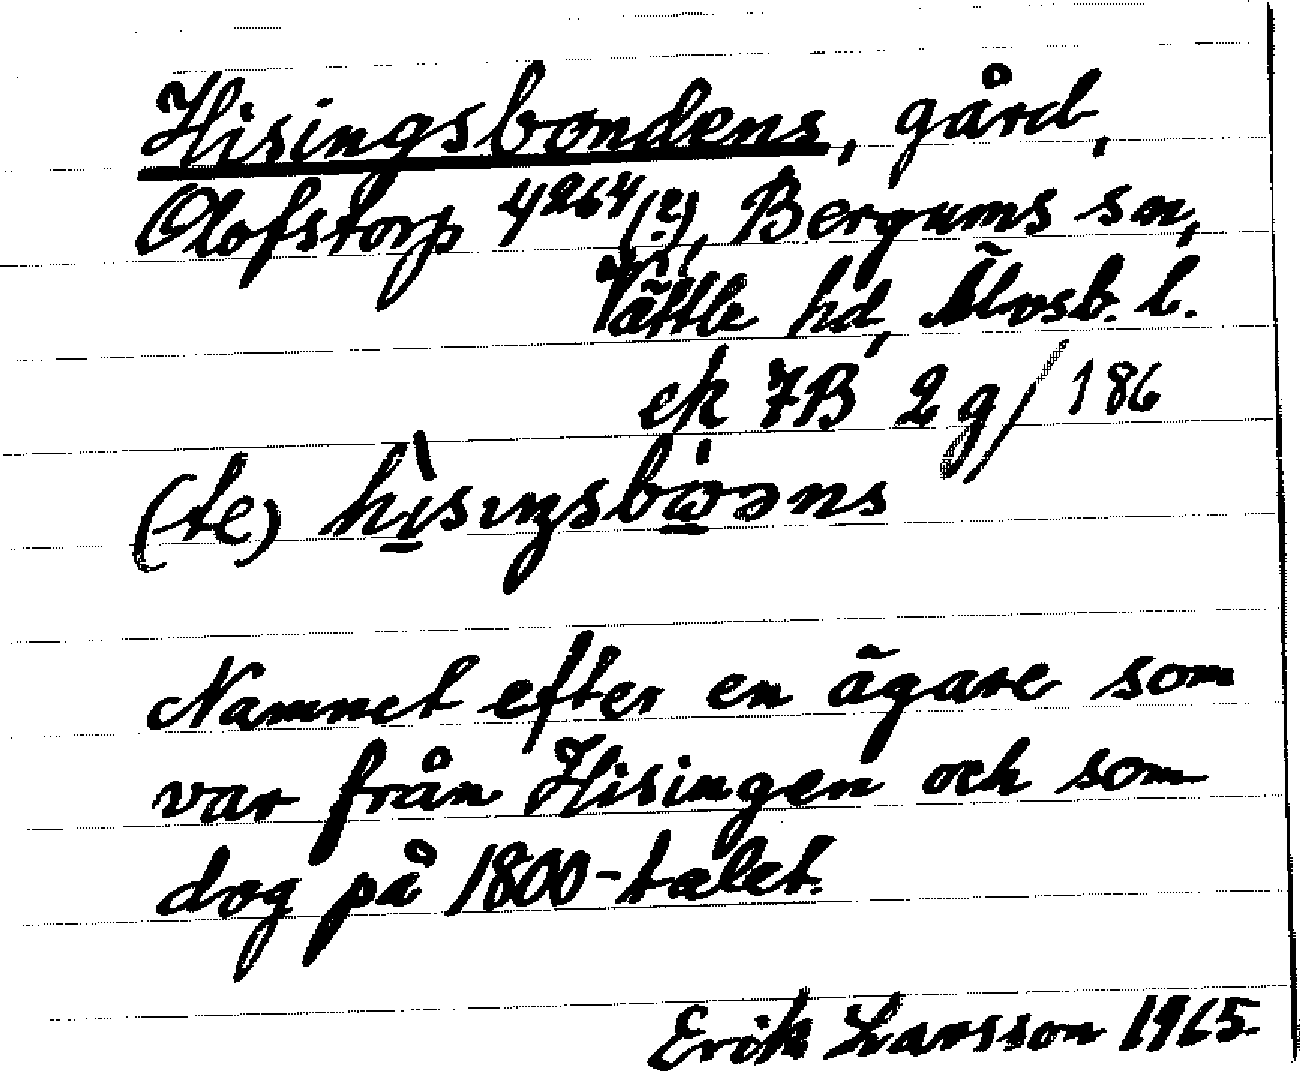 Hisingsbondens, gård,
Olofstorp 4²⁶⁴(?), Bergums sn,
Vättle hd, Älvsb. l.
ek 7B 2g/186
(te) hı̀sıŋsbɷ̇əns
Namnet efter en ägare som
var från Hisingen och som
dog på 1800-talet.
Erik Larsson 1965